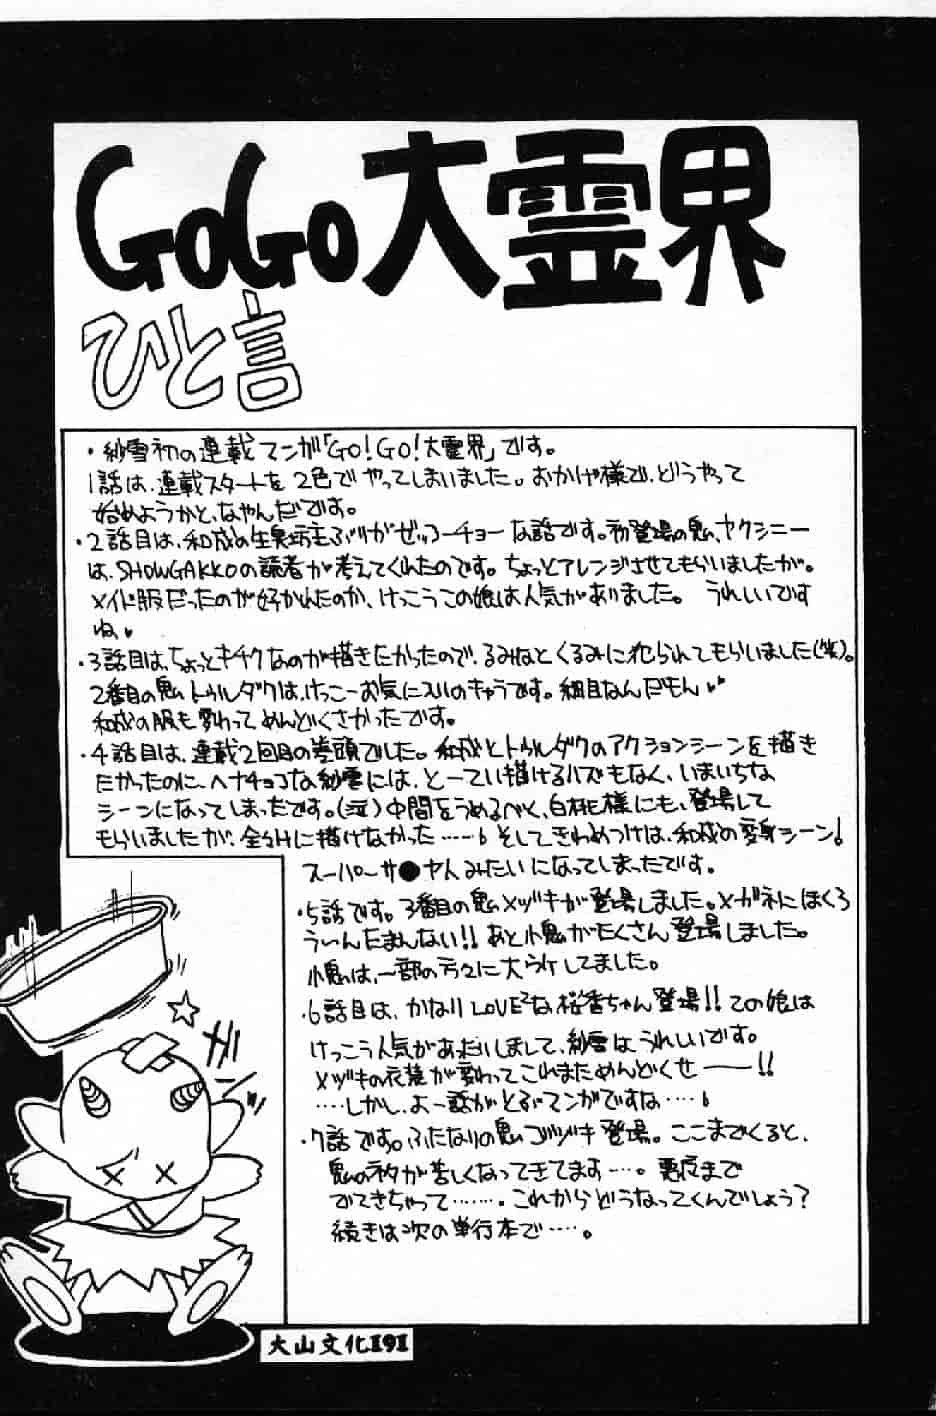 GoGo大霊界
ひと言
・紗雪初の連載マンガ「GO!GO!大霊界」です。
1話は、連載スタートを2色でやってしまいました。おかげ様で、どうやって
始めようかと、なやんだです。
・2話目は、和成の生臭坊主ぶりがぜっこーチョーな話です。初登場の鬼、ヤクシニー
は、SHOWGAKKOの読者が考えてくれたのです。ちょっとアレンジさせてもらいましたが。
メイド服だったのが好かれたのか、けっこうこの娘は人気がありました。 うれしいです
ね♥
・3話目は、ちょっとキチクなのが描きたかったので、るみなとくるみに犯られてもらいました(笑)。
2番目の鬼トゥルダクは、けっこーお気に入りのキャラです。細目なんだもん♥♥
和成の服も変わってめんどくさかったです。
・4話目は、連載2回目の巻頭でした。和成とトゥルダクのアクションシーンを描き
たかったのに、ヘナチョコな紗雪には、とーてい描けるハズもなく、いまいちな
シーンになってしまったです。(泣)中間をうめるべく、白桃様にも、登場して
もらいましたが、全然に描けなかった……。そしてきわめつけは、和成の変身シーン!
スーパーサ●ヤ人みたいになってしまったです。
・5話です。3番目の鬼メヅキが登場しました。メガネにほくろ
ういんたまんない!!あと小鬼がたくさん登場しました。
小鬼は、一部の方々に大ウケしてました。
・6話目は、かなりLOVE²な桜香ちゃん登場!!この娘は
けっこう人気があったいしまして、紗雪はうれしいです。
メヅキの衣装が変わってこれまためんどくせ――!!
……しかし、よー話がとぶマンガですな……。
・7話です。ふたなりの鬼ゴヅキ登場。ここまでくると、
鬼のネタが苦しくなってきてます…。悪魔まで
でてきちゃって……。これからどうなってくんでしょう?
続きは次の単行本で……。
ガーン
大山文化191